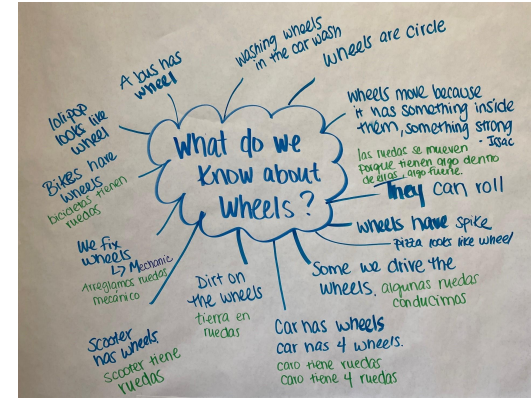 What do we
Know about
Wheels?
A bus has
wheel
washing wheels
in the car wash
Wheels are circle
Wheels move because
it has something inside
them, something strong
- Issac
las ruedas se mueven
porque tienen algo dentro
de ellas, algo fuerte.
They can roll
Wheels have spike
Pizza looks like wheel
Some we drive the
wheels. algunas ruedas
conducimos
Car has wheels
car has 4 wheels.
caro tiene ruedas
caro tiene 4 ruedas
Dirt on
the wheels
tierra en
ruedas
Scooter
has wheels.
scooter tiene
ruedas
We fix
wheels
↳ Mechanic
Arreglamos ruedas
mecánico
Bikes have
wheels
bicicletas tienen
ruedas
lolipop
looks like
wheel